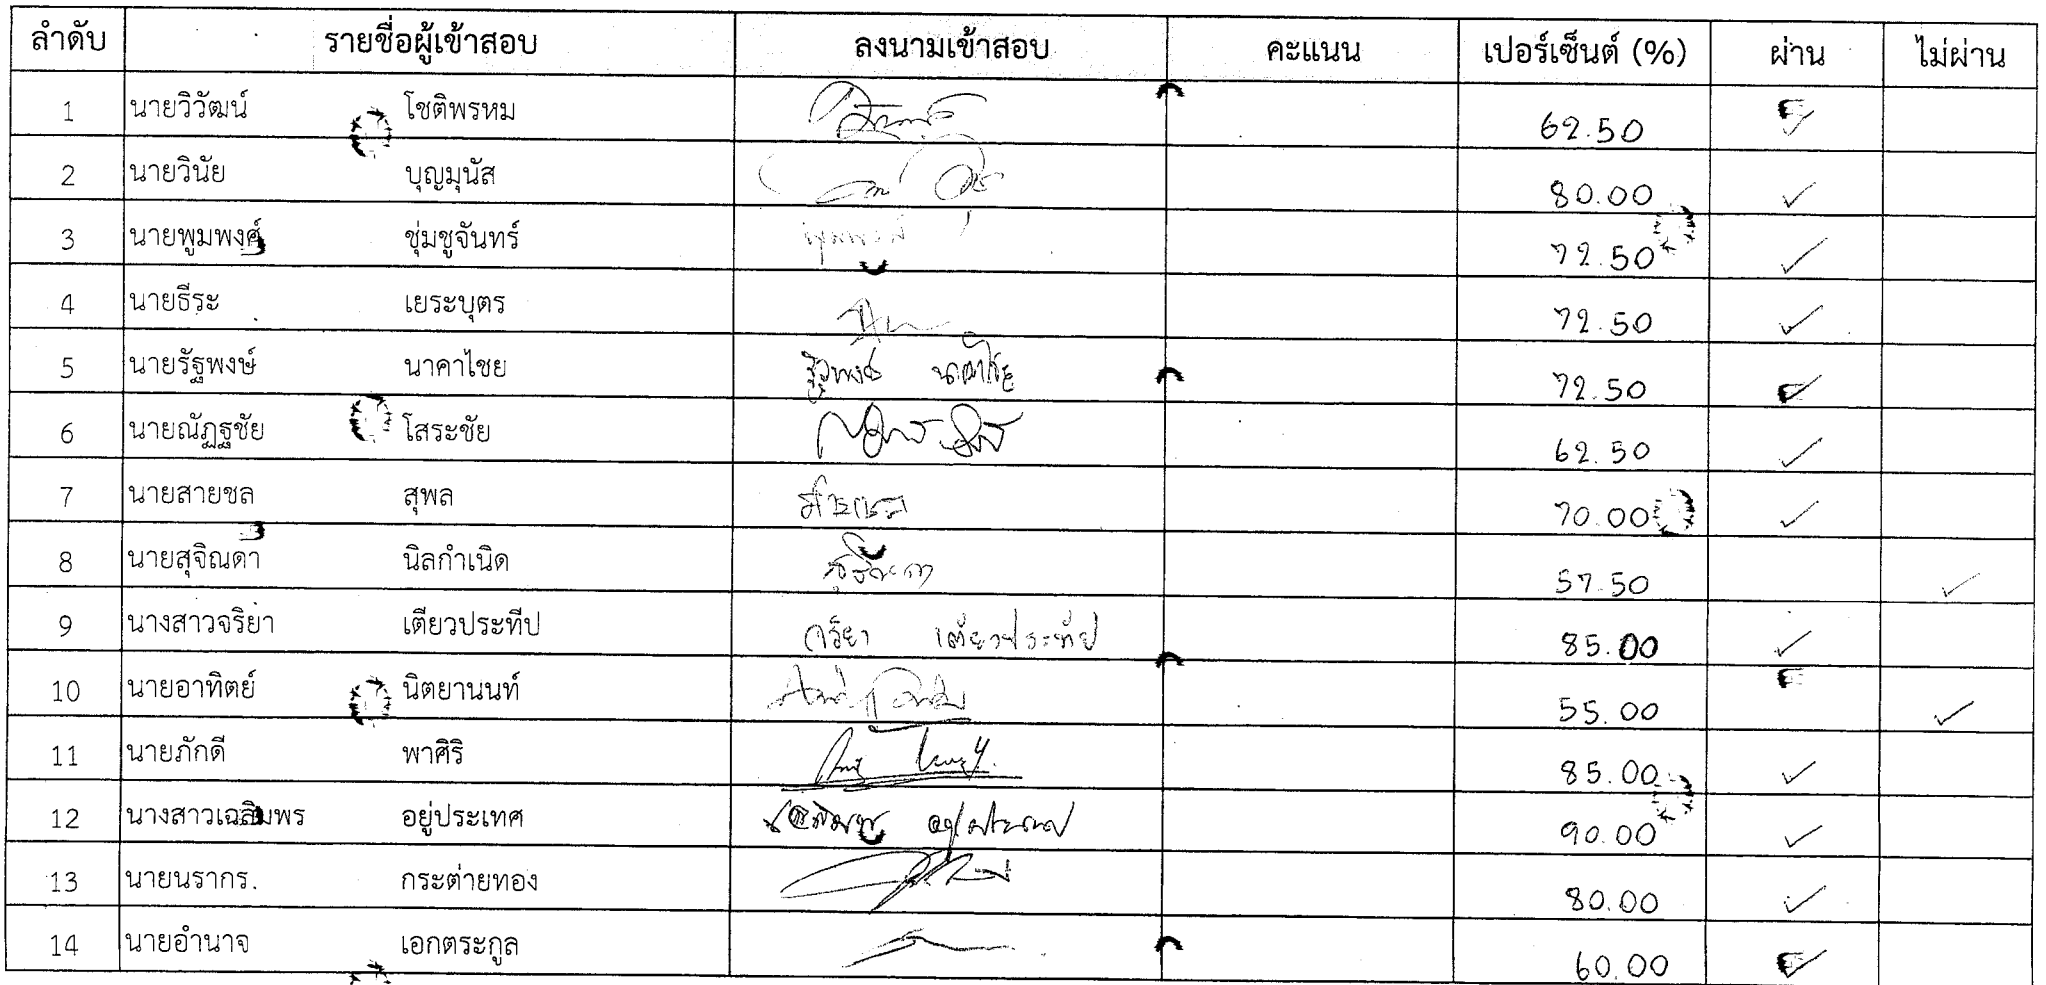 ลำดับ รายชื่อผู้เข้าสอบ ลงนามเข้าสอบ คะแนน เปอร์เซ็นต์ (%) ผ่าน ไม่ผ่าน
1 นายวิวัฒน์ โชติพรหม 62.50 ✓
2 นายวินัย บุญมุนัส 80.00 ✓
3 นายพูมพงศ์ ชุ่มชูจันทร์ 72.50 ✓
4 นายธีระ เยระบุตร 72.50 ✓
5 นายรัฐพงษ์ นาคาไชย รัฐพงษ์ นาคาไชย 72.50 ✓
6 นายณัฏฐชัย โสระชัย 62.50 ✓
7 นายสายชล สุพล สายชล 70.00 ✓
8 นายสุจิณดา นิลกำเนิด สุจิณดา 57.50 ✓
9 นางสาวจริยา เตียวประทีป จริยา เตียวประทีป 85.00 ✓
10 นายอาทิตย์ นิตยานนท์ 55.00 ✓
11 นายภักดี พาศิริ 85.00 ✓
12 นางสาวเฉลิมพร อยู่ประเทศ เฉลิมพร อยู่ประเทศ 90.00 ✓
13 นายนรากร. กระต่ายทอง 80.00 ✓
14 นายอำนาจ เอกตระกูล 60.00 ✓